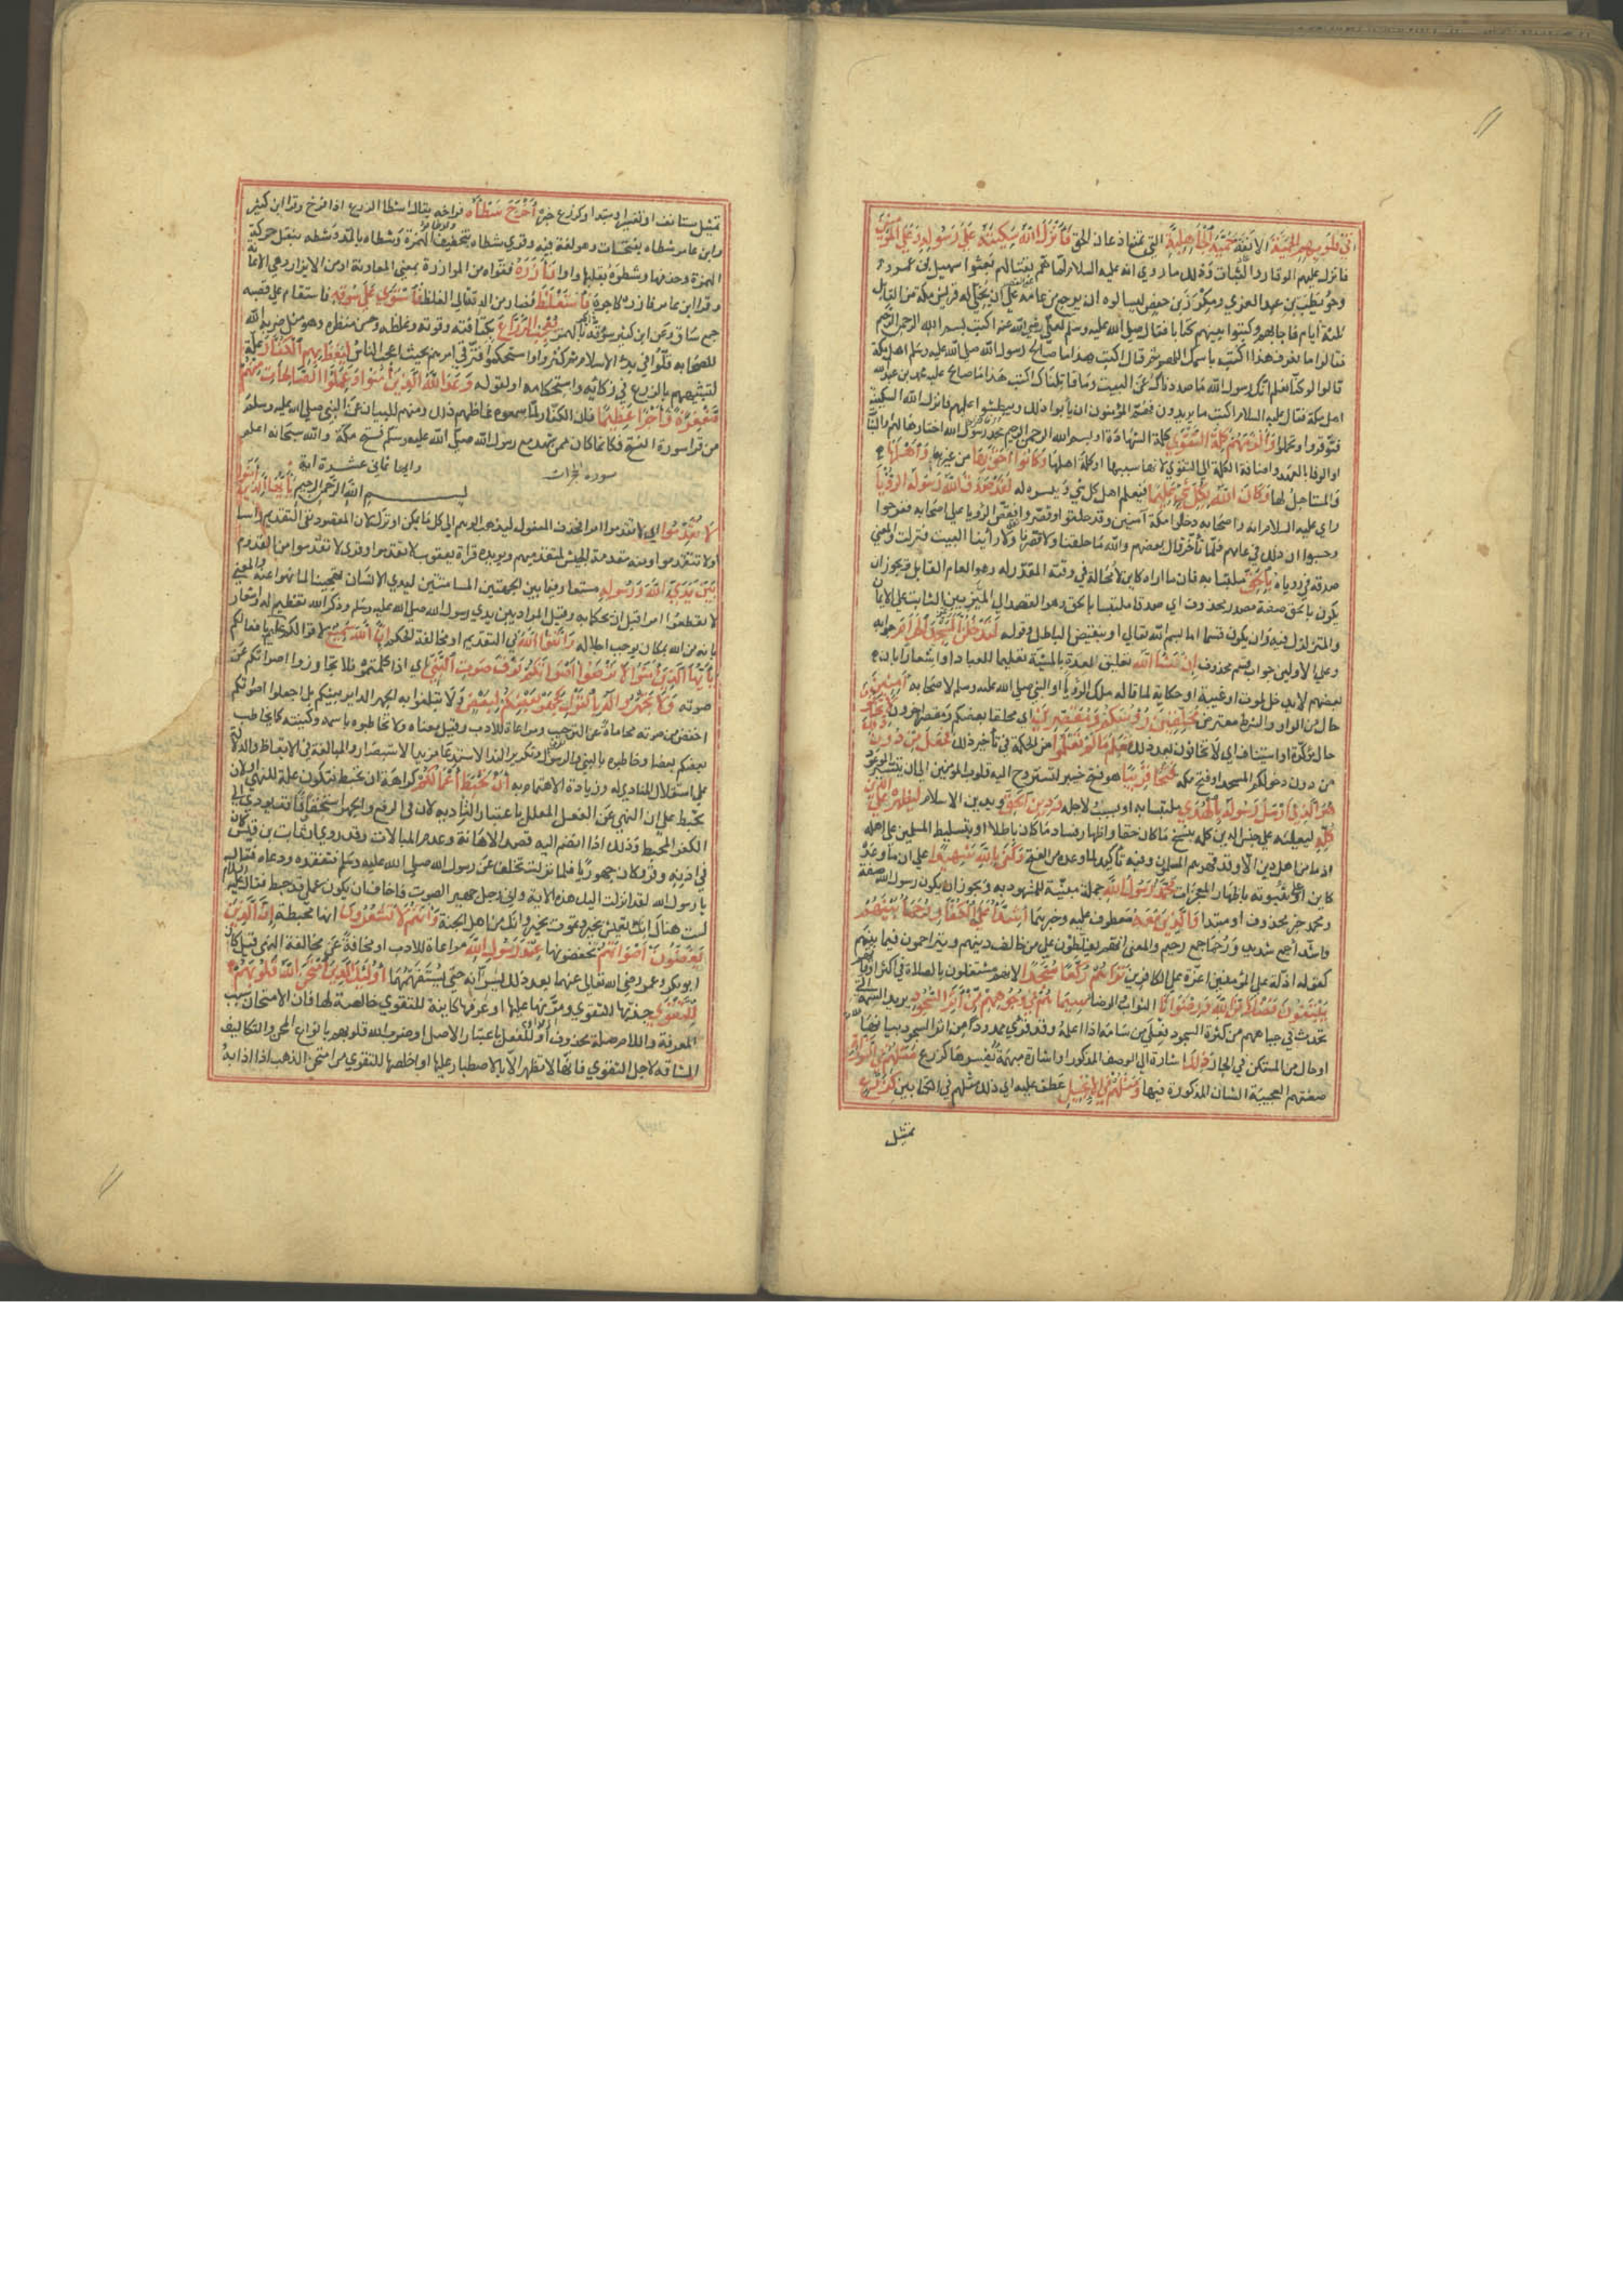 في قلوبهم الحمية الانفة حمية الجاهلية التي تمنع اذعان الحق فانزل الله سكينته علي رسوله وعلي المؤمنين
فانزل عليهم الوقار والثبات وذلك ما روي انه عليه السلام لما هم بقتالهم بعثوا سهيل بن عمرو
وحويطب بن عبد العزي ومكرز بن حفص ليسالوه ان يرجع من عامه علي ان يخلي له قريش مكة من القابل
ثلثة ايام فاجابهم وكتبوا بينهم كتابا فقال صلي الله عليه وسلم لعلي رضي الله عنه اكتب بسم الله الرحمن الرحيم
فقالوا ما نعرف هذا اكتب باسمك اللهم ثم قال اكتب هذا ما صالح رسول الله صلي الله عليه وسلم اهل مكة
قالوا لو كنا نعلم انك رسول الله ما صددناك عن البيت وما قاتلناك اكتب هذا ما صالح عليه محمد بن عبد الله
اهل مكة فقال عليه السلام اكتب ما يريدون فهم المؤمنون ان يابوا ذلك ويبطشوا عليهم فانزل الله السكينة
فتوقروا وتحملوا والزمهم كلمة التقوي كلمة الشهادة او بسم الله الرحمن الرحيم محمد رسول الله اختارها لهم والثبات
او الوفا بالعهد واضافة الكلمة الي التقوي لانها سببها او كلمة اهلها وكانوا احق بها من غيرهم واهلها
والمستاهل لها وكان الله بكل شئ عليما فيعلم اهل كل شئ وييسره له لقد صدق الله رسوله الرؤيا
راي عليه السلام انه واصحابه دخلوا مكة آمنين وقد حلقوا وقصروا فقص الرؤيا علي اصحابه ففرحوا
وحسبوا ان ذلك في عامهم فلما تأخر قال بعضهم والله ما حلقنا ولا قصرنا ولا رأينا البيت فنزلت والمعني
صدقه في رؤياه بالحق ملتبسا به فان ما اراه كاين لا محالة في وقته المقدر له وهو العام القابل ويجوز ان
يكون بالحق صفة مصدر محذوف اي صدقا ملتبسا بالحق وهو القصد الي التمييز بين الثابت علي الايمان
والمتزلزل فيه وان يكون قسما اما باسم الله تعالي او بنقيض الباطل وقوله لتدخلن المسجد الحرام جوابه
وعلي الاولين جواب قسم محذوف ان شا الله تعليق للعدة بالمشية تعليما للعباد او اشعارا بان
بعضهم لا يدخل لموت او غيبة او حكاية لما قاله ملك الرؤيا او النبي صلي الله عليه وسلم لاصحابه آمنين
حال من الواو والشرط معترض محلقين رؤسكم ومقصرين اي محلقا بعضكم ومقصرا آخرون لا تخافون
حال مؤكدة او استيناف اي لا تخافون بعد ذلك فعلم ما لم تعلموا من الحكمة في تأخير ذلك فجعل من دون ذلك
من دون دخولكم المسجد او فتح مكه فتحا قريبا هو فتح خيبر لتستروح اليه قلوب المؤمنين الي ان يتيسر الموعود
هو الذي ارسل رسوله بالهدي ملتبسا به او بسببه ولاجله ودين الحق وبدين الاسلام ليظهره علي الدين
كله ليغلبه علي جنس الدين كله بنسخ ما كان حقا واظهار فساد ما كان باطلا او بتسليط المسلمين علي اهله
اذ ما من اهل دين الا وقد قهرهم المسلمون وفيه تأكيد لما وعده من الفتح وكفي بالله شهيدا علي ان ما وعده
كاين او علي نبوته باظهار المعجزات محمد رسول الله جملة مبينة للمشهود به ويجوز ان يكون رسول الله صفة
ومحمد خبر محذوف او مبتدا والذين معه معطوف عليه وخبرهما اشدا علي الكفار رحما بينهم
واشدا جمع شديد ورحما جمع رحيم والمعني انهم يغلظون علي من خالف دينهم ويتراحمون فيما بينهم
كقوله اذلة علي المؤمنين اعزة علي الكافرين تراهم ركعا سجدا لانهم مشتغلون بالصلاة في اكثر اوقاتهم
يبتغون فضلا من الله ورضوانا الثواب والرضا سيماهم في وجوههم من اثر السجود يريد السمة التي
تحدث في جباههم من كثرة السجود فعلي من سامه اذا اعلمه وقد قرئ ممدودة ومن اثر السجود بيانها
او حال من المستكن في الجار ذلك اشارة الي الوصف المذكور او اشارة مبهمة يفسرها كزرع مثلهم في التوراة
صفتهم العجيبة الشان المذكورة فيها ومثلهم في الانجيل عطف عليه اي ذلك مثلهم في الكتابين كزرع
تمثيل
تمثيل مستانف او تفسير او مبتدا وكزرع خبره اخرج شطأه فراخه يقال اشطا الزرع اذا فرخ وقرا ابن كثير
وابن عامر شطاه بفتحات وهو لغة فيه وقري شطاه بتخفيف الهمزة وشطاه بالمد وشطه بنقل حركة
الهمزة وحذفها وشطوه بقلبها واوا فآزره فقواه من الموازرة بمعني المعاونة او من الايزار وهي الاعانة
وقرا ابن عامر فازره كاجره فاستغلظ فصار من الدقة الي الغلظ فاستوي علي سوقه فاستقام علي قصبه
جمع ساق وعن ابن كثير سؤقه بالهمزة يعجب الزراع بكثافته وقوته وغلظه وحسن منظره وهو مثل ضربه الله
للصحابه قلوا في بدء الاسلام ثم كثروا واستحكموا فترقي امرهم بحيث اعجب الناس ليغيظ بهم الكفار علة
لتشبيههم بالزرع في زكائه واستحكامه او لقوله وعد الله الذين آمنوا وعملوا الصالحات منهم
مغفرة واجرا عظيما فان الكفار لما سمعوه غاظهم ذلك ومنهم للبيان عن النبي صلي الله عليه وسلم
من قرا سورة الفتح فكانما كان ممن شهد مع رسول الله صلي الله عليه وسلم فتح مكة والله سبحانه اعلم
سورة حجرات وايها ثماني عشرة اية
بسم الله الرحمن الرحيم يأيها الذين آمنوا
لا تقدموا اي لا تقدموا امرا فحذف المفعول ليذهب الوهم الي كل ما يمكن او ترك لان المقصود نفي التقديم راسا
او لا تتقدموا ومنه مقدمة الجيش لمتقدميهم ويؤيده قراة يعقوب لا تقدموا وقري لا تقدموا من القدوم
بين يدي الله ورسوله مستعار مما بين الجهتين المسامتتين ليدي الانسان تهجينا لما نهوا عنه والمعني
لا تقطعوا امرا قبل ان يحكما به وقيل المراد بين يدي رسول الله صلي الله عليه وسلم وذكر الله تعظيم له واشعار
بانه من الله بمكان يوجب اجلاله واتقوا الله في التقديم او مخالفة الحكم ان الله سميع لاقوالكم عليم بافعالكم
يا ايها الذين آمنوا لا ترفعوا اصواتكم فوق صوت النبي اي اذا كلمتموه فلا تجاوزوا اصواتكم عن
صوته ولا تجهروا له بالقول كجهر بعضكم لبعض ولا تبلغوا به الجهر الداير بينكم بل اجعلوا اصواتكم
اخفض من صوته محاماة عن الترحيب ومراعاة للادب وقيل معناه ولا تخاطبوه باسمه وكنيته كما يخاطب
بعضكم بعضا وخاطبوه بالنبي والرسول وتكرير الندا لاستدعا مزيد الاستبصار والمبالغة في الايقاظ والدلالة
علي استقلال المنادي له وزيادة الاهتمام به ان تحبط اعمالكم كراهة ان تحبط فتكون علة للنهي او لان
تحبط علي ان النهي عن الفعل المعلل باعتبار التأدية لان في الرفع والجهر استخفافا قد يودي الي
الكفر المحبط وذلك اذا انضم اليه قصد الاهانة وعدم المبالات وقد روي ان ثابت بن قيس كان
في اذنه وقر وكان جهوريا فلما نزلت تخلف عن رسول الله صلي الله عليه وسلم فتفقده ودعاه فقال
يا رسول الله لقد انزلت اليك هذه الاية واني رجل جهير الصوت فاخاف ان يكون عملي قد حبط فقال عليه السلام
لست هناك انك تعيش بخير وتموت بخير وانك من اهل الجنة وانتم لا تشعرون انها محبطة ان الذين
يغضون اصواتهم يخفضونها عند رسول الله مراعاة للادب او مخافة عن مخالفة النهي قيل كان
ابو بكر وعمر رضي الله تعالي عنهما بعد ذلك يسرانه حتي يستفهمهما اولئك الذين امتحن الله قلوبهم
للتقوي جربها للتقوي ومرنها عليها او عرفها كاينة للتقوي خالصة لها فان الامتحان سبب
المعرفة واللام صلة محذوف او للفعل باعتبار الاصل او ضرب الله قلوبهم بانواع المحن والتكاليف
الشاقه لاجل التقوي فانها لا تظهر الا بالاصطبار عليها او اخلصها للتقوي من امتحن الذهب اذا اذابه